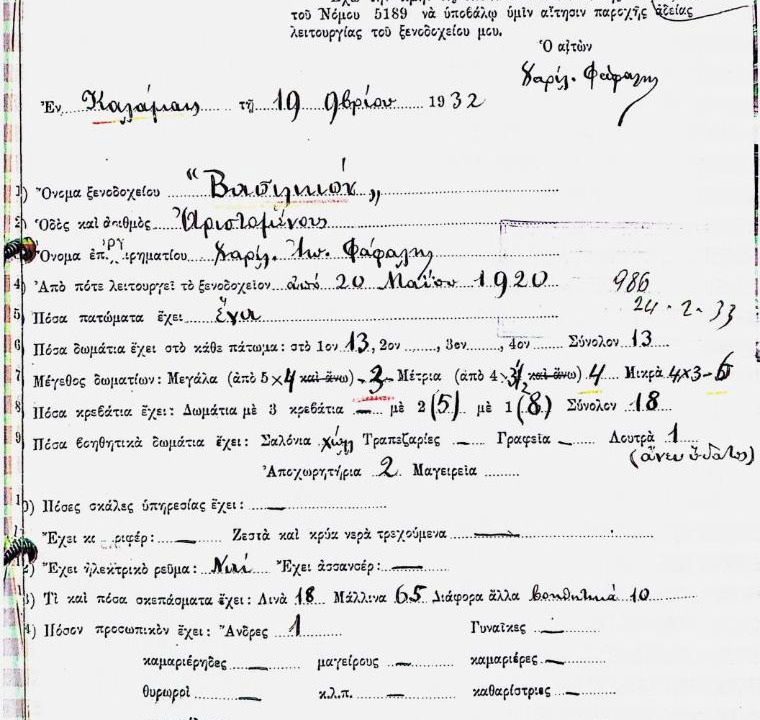 τοῦ Νόμου 5189 νὰ ὑποβάλω ὑμῖν αἴτησιν παροχῆς ἀδείας
λειτουργίας τοῦ ξενοδοχείου μου.
Ὁ αἰτῶν
Χαρίλ. Φάφαλης
Ἐν Καλάμαις τῇ 19 9βρίου 1932
1) Ὄνομα ξενοδοχείου "Βασιλικόν"
2) Ὁδὸς καὶ ἀριθμὸς Ἀριστομένους
Ὄνομα ἐπιχειρηματίου Χαρίλ. Φάφαλης
4) Ἀπὸ πότε λειτουργεῖ τὸ ξενοδοχεῖον ἀπό 20 Μαΐου 1920
986
24-2-33
5 Πόσα πατώματα ἔχει ἕνα
6 Πόσα δωμάτια ἔχει στὸ κάθε πάτωμα: στὸ 1ον 13, 2ον, 3ον, 4ον Σύνολον 13
7 Μέγεθος δωματίων: Μεγάλα (ἀπὸ 5×4 καὶ ἄνω) -3- Μέτρια (ἀπὸ 4×3½ καὶ ἄνω) 4 Μικρὰ 4×3-6
8 Πόσα κρεβάτια ἔχει: Δωμάτια μὲ 3 κρεβάτια — μὲ 2 (5) μὲ 1 (8) Σύνολον 18
9 Πόσα βοηθητικὰ δωμάτια ἔχει: Σαλόνια χώλ Τραπεζαρίες — Γραφεῖα — Λουτρὰ 1
(ἄνευ ὕδατος)
Ἀποχωρητήρια 2 Μαγειρεῖα
0) Πόσες σκάλες ὑπηρεσίας ἔχει: —
Ἔχει κα ριφέρ: — Ζεστὰ καὶ κρύα νερὰ τρεχούμενα —
2) Ἔχει ἠλεκτρικὸ ρεῦμα: Ναί Ἔχει ἀσσανσέρ: —
3) Τὶ καὶ πόσα σκεπάσματα ἔχει: Λινὰ 18 Μάλλινα 65 Διάφορα ἄλλα βοηθητικά 10
4) Πόσον προσωπικὸν ἔχει: Ἄνδρες 1 Γυναῖκες —
καμαριέρηδες — μαγείρους — καμαριέρες —
θυρωροί — κ.λ.π. — καθαρίστριες —